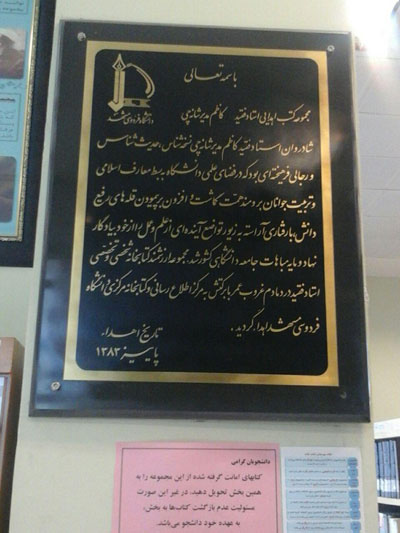 باسمه تعالی
دانشگاه فردوسی مشهد
مجموعه کتب اهدایی استاد فقید کاظم مدیر شانه چی
شادروان استاد فقید کاظم مدیر شانه چی نسخه شناس، حدیث شناس
و رجالی فرهیخته ای بود که در فضای علمی دانشگاه به بسط معارف اسلامی
و تربیت جوانان برومند همت گماشت و افزون بر پیمودن قله های رفیع
دانش، با رفتاری آراسته به زیور تواضع آینده ای از علم و عمل را از خود به یادگار
نهاد و مایه مباهات جامعه دانشگاهی کشور شد. مجموعه ارزشمند کتابخانه شخصی و تخصصی
استاد فقید در دمادم غروب عمر بابرکتش به مرکز اطلاع رسانی و کتابخانه مرکزی دانشگاه
فردوسی مشهد اهدا گردید.
تاریخ اهداء
پاییز ۱۳۸۳
دانشجویان گرامی
کتابهای امانت گرفته شده از این مجموعه را به
همین بخش تحویل دهید، در غیر این صورت
مسئولیت عدم بازگشت کتاب‌ها به بخش،
به عهده خود دانشجو می‌باشد.